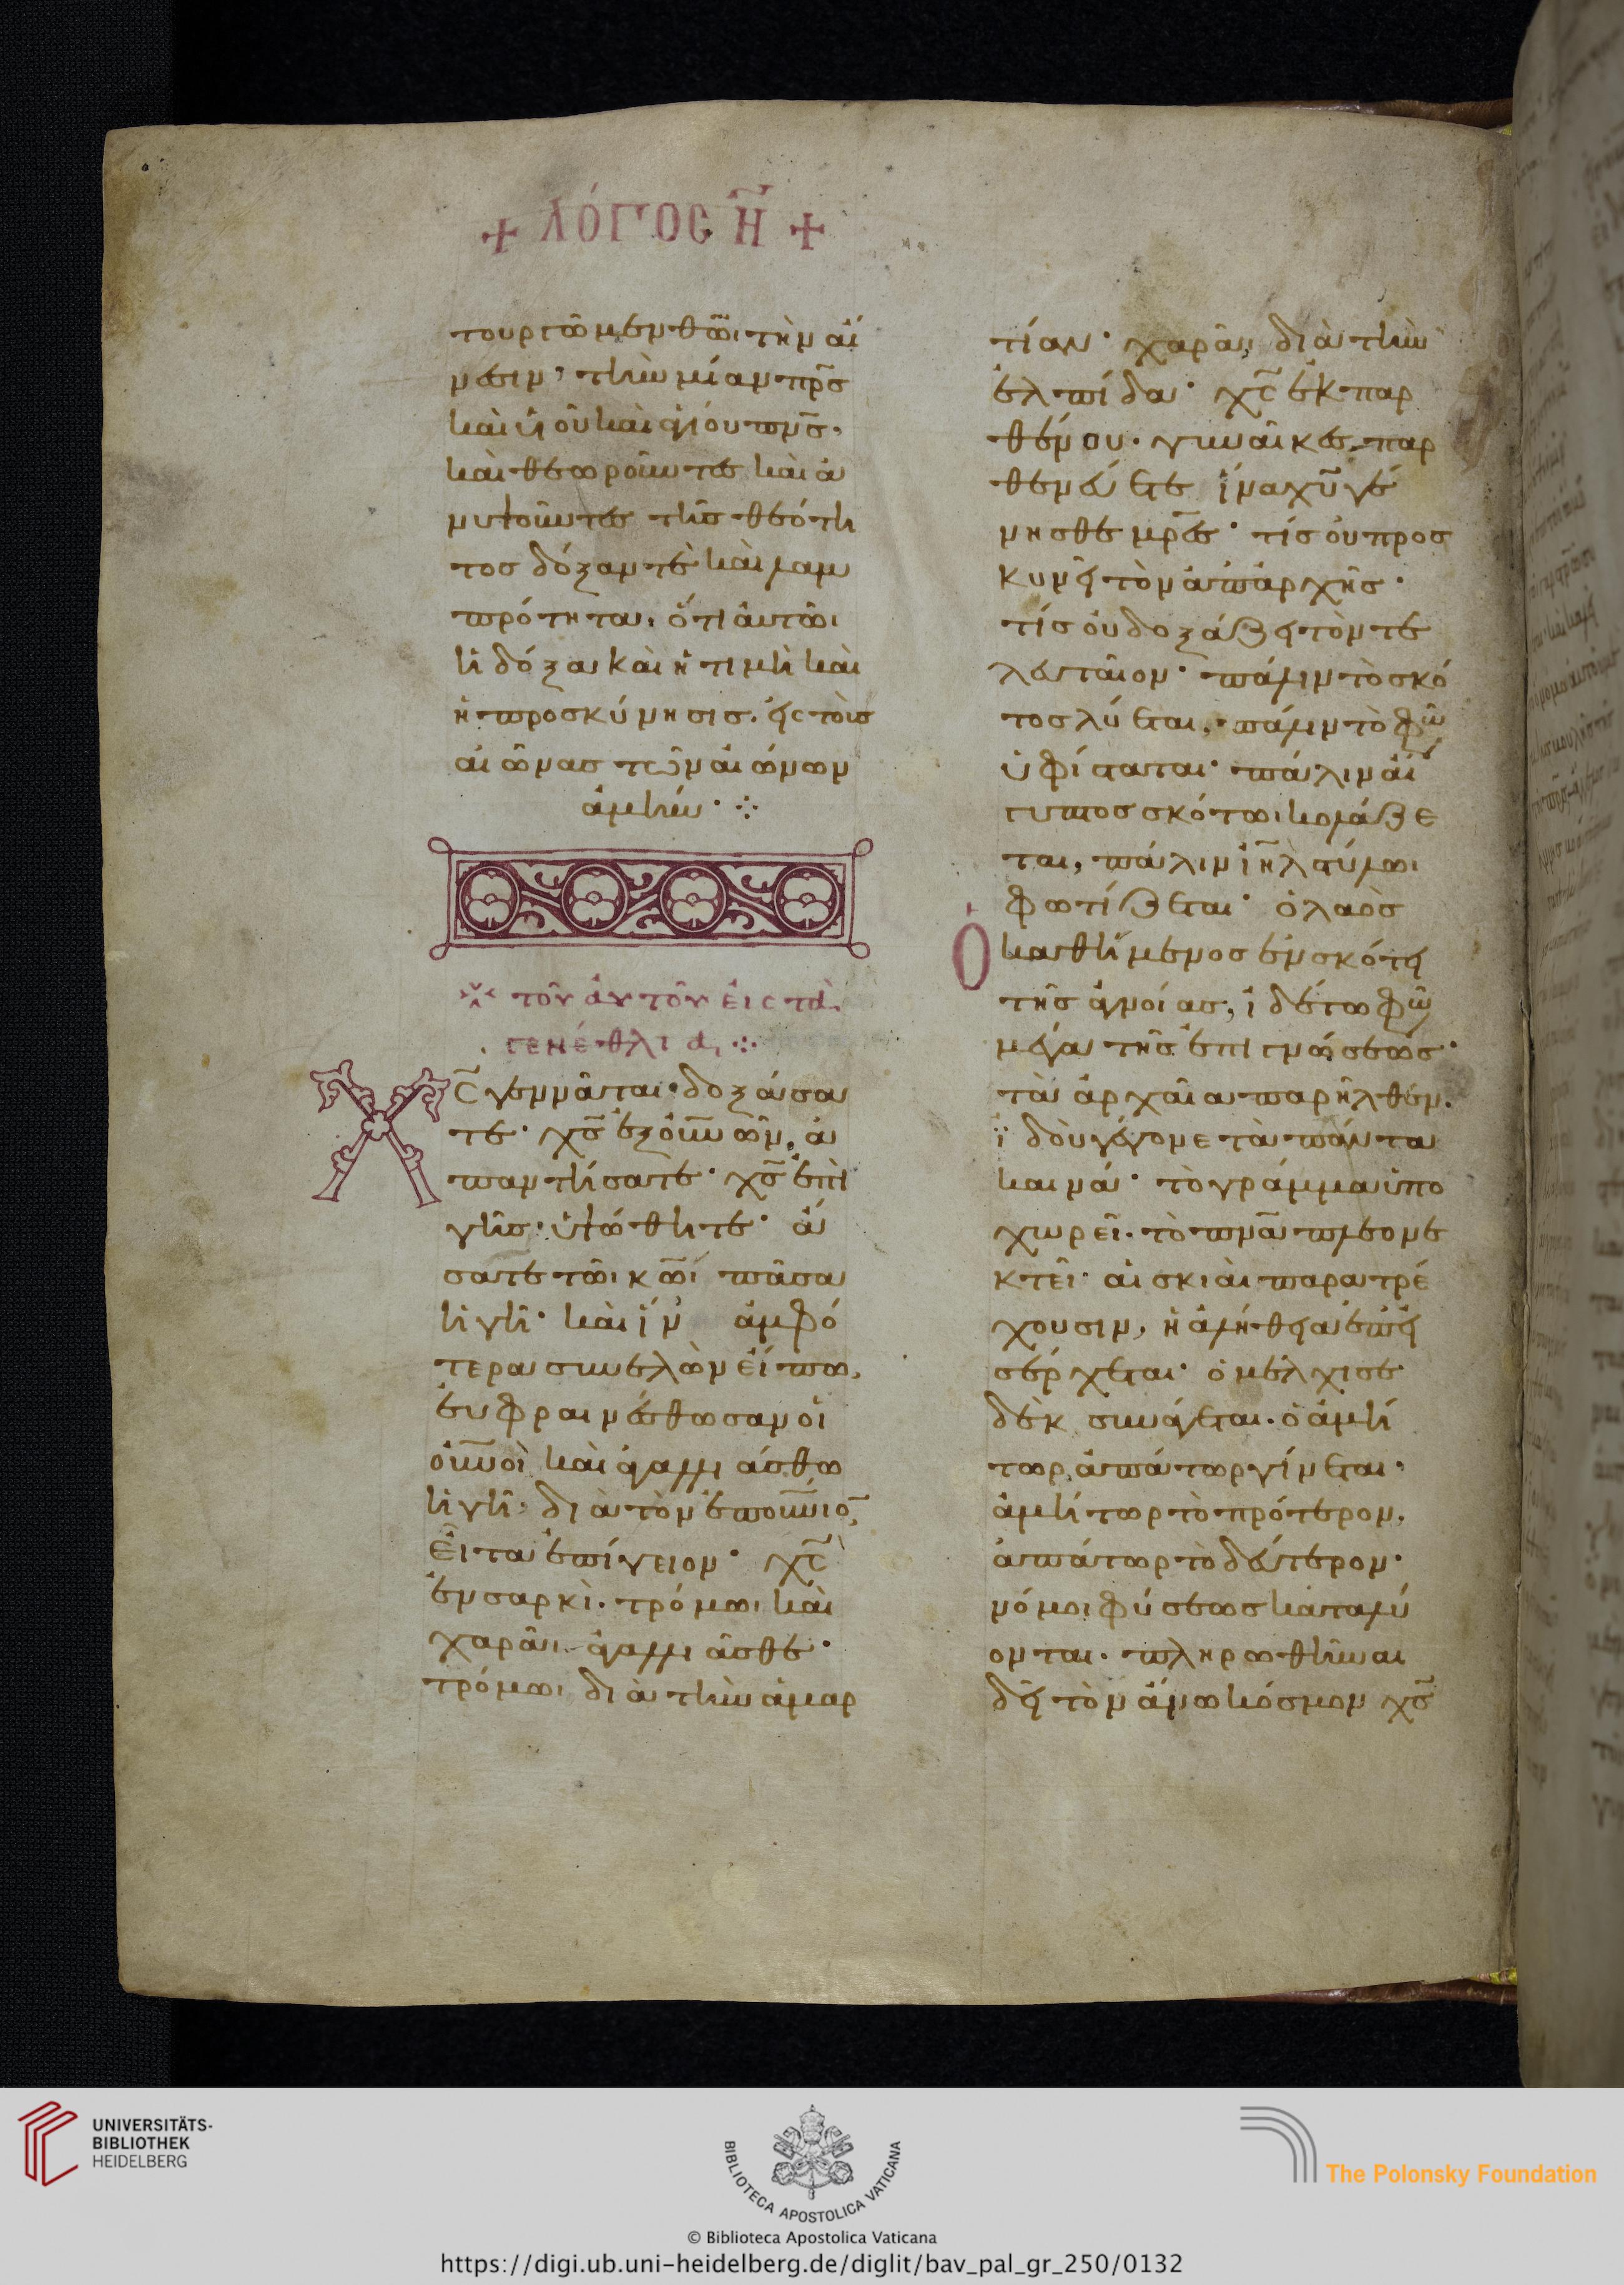 + ΛΌΓΟΣ Η̃ +
τουργῶμεν θ̅ῶι τὴν αἴ
νεσιν, τὴν μίαν π̅ρ̅ς
καὶ ὑιοῦ καὶ ἁγίου π̅ν̅ς·
καὶ θεωροῦντες καὶ ἀ
νυμνοῦντες τῆς θεότη
τος δόξαν τὲ καὶ λαμ
πρότητα, ὅτι αὐτῶι
ἡ δόξα καὶ ἡ τιμὴ καὶ
ἡ προσκύνησις· εἰς τοὺς
αἰῶνας τῶν αἰώνων
ἀμήν· ⁘
τοῦ ἀυτοῦ ἐις τὰ
γενέθλια ⁘
Χ̅ς̅ γεννᾶται· δοξάσα
τε· χ̅ς̅ ἐξ ὀυ̅ν̅ῶν, ἀ
παντήσατε· χ̅ς̅ ἐπὶ
γῆς· ὑψώθητε· ἄ
σατε τῶι κ̅ῶι πᾶσα
ἡ γῆ· καὶ ἵν ἀμφό
τερα συνελὼν εἴπω,
ἐυφραινέσθωσαν οἱ
ὀυ̅ν̅οὶ καὶ ἀγαλλιάσθω
ἡ γῆ· διὰ τὸν ἐπουνιο̅
εἶτα ἐπίγειον· χ̅ς̅
ἐν σαρκὶ. τρόμωι καὶ
χαρᾶι ἀγαλλιᾶσθε·
τρόμωι διὰ τὴν ἁμαρ
τίαν· χαρᾶι, διὰ τὴν
ἐλπίδα· χ̅ς̅ ἐκ παρ
θένου. γυναῖκες παρ
θενεύετε ἵνα χ̅υ̅ γέ
νησθε μ̅ρ̅ες· τίς οὐ προσ
κυνεῖ τὸν ἀπάρχῆς·
τίς οὐ δοξάζει τὸν τε
λευταῖον· πάλιν τὸ σκό
τος λύεται· πάλιν τὸ φῶς
ὑφίσταται· πάλιν αἴ
γυπτος σκότωι κολάζε
ται, πάλιν ι̅η̅λ στύλωι
φωτίζεται· ὁ λαὸς
Ὁ καθήμενος ἐν σκότει
τῆς ἀγνοίας, ἰδέτω φῶς
μέγα τῆς ἐπιγνώσεως·
τὰ ἀρχαῖα παρῆλθεν.
ἰδοὺ γέγονε τὰ πάντα
καινά· τὸ γράμμα ὑπο
χωρεῖ. τὸ π̅ν̅ᾶ πλεονε
κτεῖ· αἱ σκιαὶ παρατρέ
χουσιν, ἡ ἀλήθεια ἐπει
σέρχεται· ὁ μελχισε
δὲκ συνάγεται. ὁ ἀμή
τωρ, ἀπάτωρ γίνεται·
ἀμήτωρ τὸ πρότερον.
ἀπάτωρ τὸ δεύτερον·
νόμοι φύσεως καταλύ
ονται. πληρωθῆναι
δεῖ τὸν ἄνω κόσμον χ̅ς̅
UNIVERSITÄTS-
BIBLIOTHEK
HEIDELBERG
BIBLIOTECA APOSTOLICA VATICANA
The Polonsky Foundation
© Biblioteca Apostolica Vaticana
https://digi.ub.uni-heidelberg.de/diglit/bav_pal_gr_250/0132